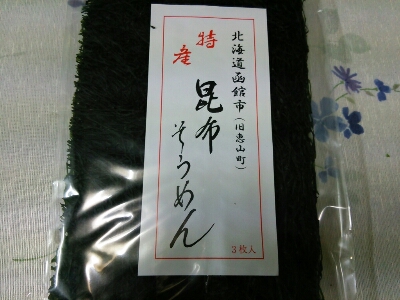 北海道函館市(旧恵山町)
特産
昆布そうめん
3枚入